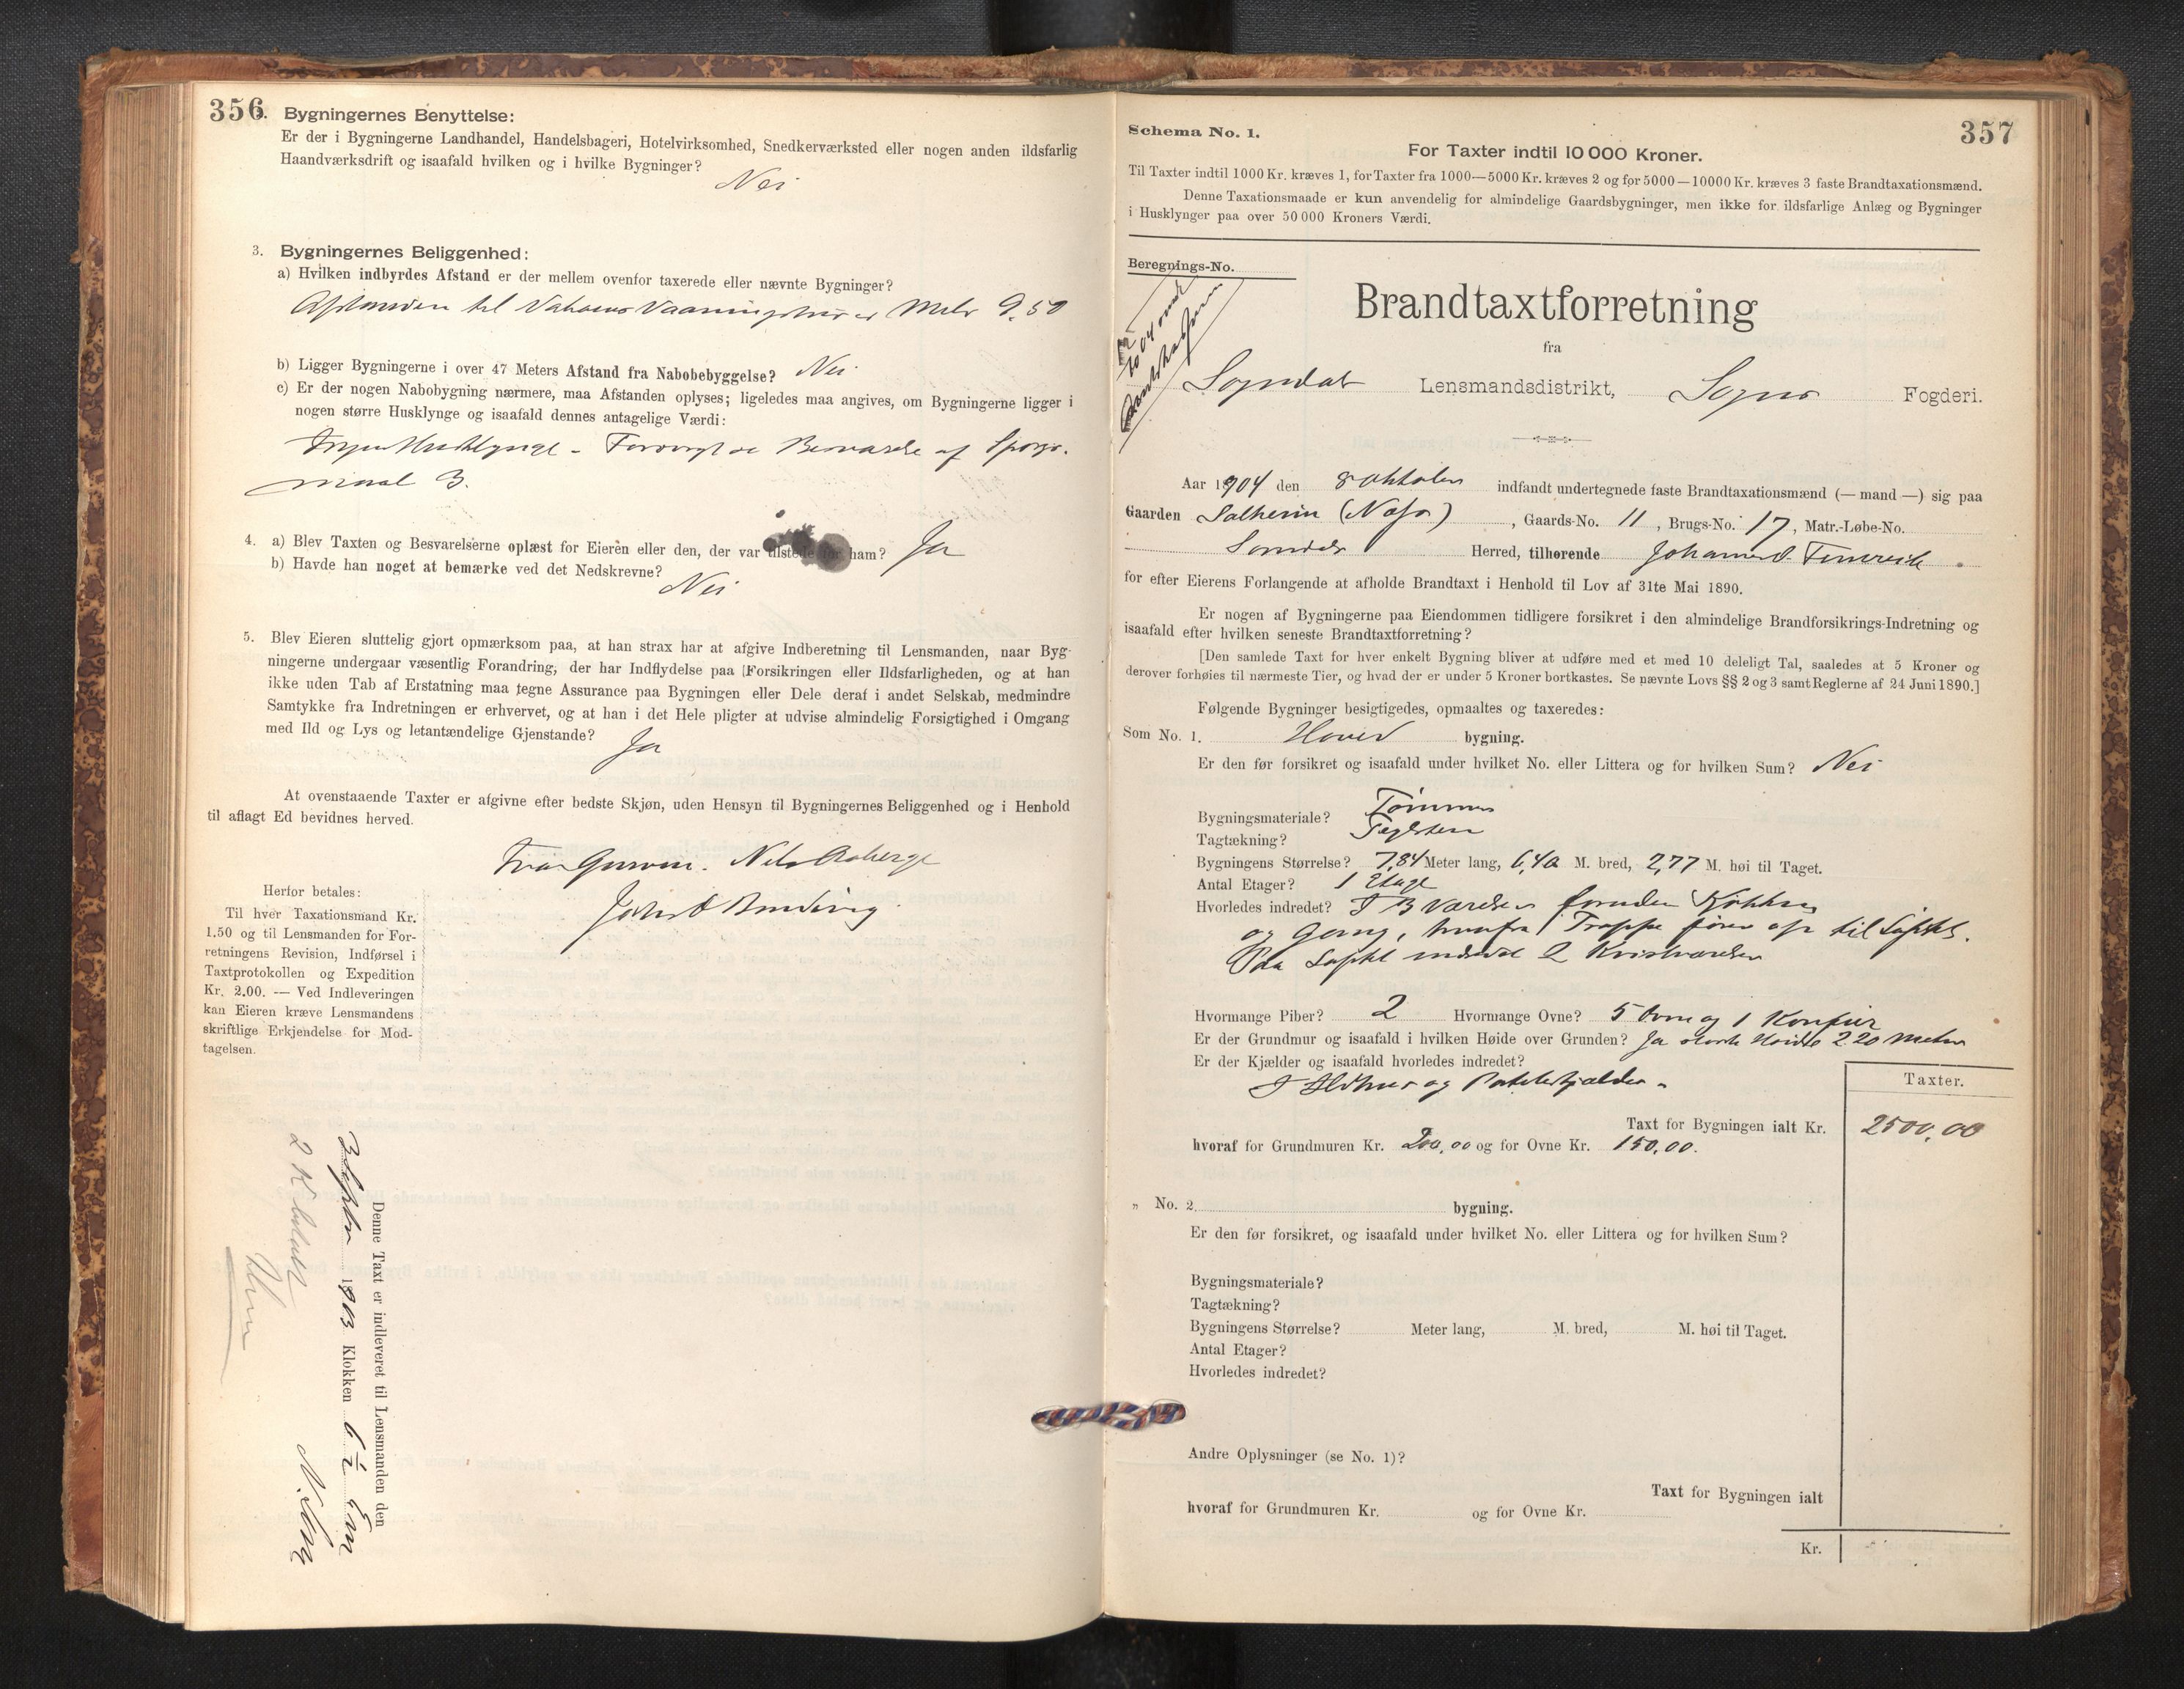 356
2. Bygningernes Benyttelse:
Er der i Bygningerne Landhandel, Handelsbageri, Hotelvirksomhed, Snedkerværksted eller nogen anden ildsfarlig
Haandværksdrift og isaafald hvilken og i hvilke Bygninger?
Nei
3. Bygningernes Beliggenhed:
a) Hvilken indbyrdes Afstand er der mellem ovenfor taxerede eller nævnte Bygninger?
Afstanden til Vaaningshus er Meter 9,50
b) Ligger Bygningerne i over 47 Meters Afstand fra Nabobebyggelse? Nei
c) Er der nogen Nabobygning nærmere, maa Afstanden oplyses; ligeledes maa angives, om Bygningerne ligger i
nogen større Husklynge og isaafald dennes antagelige Værdi:
Ingen Husklynge - Forøvrigt se Besvarelse af Spørgs-
maal B.
4. a) Blev Taxten og Besvarelserne oplæst for Eieren eller den, der var tilstede for ham? Ja
b) Havde han noget at bemærke ved det Nedskrevne?
Nei
5. Blev Eieren sluttelig gjort opmærksom paa, at han strax har at afgive Indberetning til Lensmanden, naar Byg-
ningerne undergaar væsentlig Forandring, der har Indflydelse paa Forsikringen eller Ildsfarligheden, og at han
ikke uden Tab af Erstatning maa tegne Assurance paa Bygningen eller Dele deraf i andet Selskab, medmindre
Samtykke fra Indretningen er erhvervet, og at han i det Hele pligter at udvise almindelig Forsigtighed i Omgang
med Ild og Lys og letantændelige Gjenstande?
Ja
At ovenstaaende Taxter er afgivne efter bedste Skjøn, uden Hensyn til Bygningernes Beliggenhed og i Henhold
til aflagt Ed bevidnes herved.
Nils Aaberge
Herfor betales:
Til hver Taxationsmand Kr.
1.50 og til Lensmanden for For-
retningens Revision, Indførsel i
Taxtprotokollen og Expedition
Kr. 2.00. — Ved Indleveringen
kan Eieren kræve Lensmandens
skriftlige Erkjendelse for Mod-
tagelsen.
Denne Taxt er indleveret til Lensmanden den
1903 Klokken 6 1/2
2 K betalt
357
Schema No. 1.
For Taxter indtil 10 000 Kroner.
Til Taxter indtil 1000 Kr. kræves 1, for Taxter fra 1000—5000 Kr. kræves 2 og for 5000—10000 Kr. kræves 3 faste Brandtaxationsmænd.
Denne Taxationsmaade er kun anvendelig for almindelige Gaardsbygninger, men ikke for ildsfarlige Anlæg og Bygninger
i Husklynger paa over 50 000 Kroners Værdi.
Beregnings-No.
Brandtaxtforretning
fra
Sogndal Lensmandsdistrikt, Sogns Fogderi.
Aar 1904 den 8 Oktober indfandt undertegnede faste Brandtaxationsmænd (— mand —) sig paa
Gaarden , Gaards-No. 11 , Brugs-No. 17, Matr.-Løbe-No.
Herred, tilhørende Johannes
for efter Eierens Forlangende at afholde Brandtaxt i Henhold til Lov af 31te Mai 1890.
Er nogen af Bygningerne paa Eiendommen tidligere forsikret i den almindelige Brandforsikrings-Indretning og
isaafald efter hvilken seneste Brandtaxtforretning?
[Den samlede Taxt for hver enkelt Bygning bliver at udføre med et med 10 deleligt Tal, saaledes at 5 Kroner og
derover forhøies til nærmeste Tier, og hvad der er under 5 Kroner bortkastes. Se nævnte Lovs §§ 2 og 3 samt Reglerne af 24 Juni 1890.]
Følgende Bygninger besigtigedes, opmaaltes og taxeredes:
Som No. 1. Hoved bygning.
Er den før forsikret og isaafald under hvilket No. eller Littera og for hvilken Sum? Nei
Bygningsmateriale? Tømmer
Tagtækning? Teglsten
Bygningens Størrelse? 7,84 Meter lang, 6,40 M. bred, 2,77 M. høi til Taget.
Antal Etager? 1 Etage
Hvorledes indredet? I 3 Værelser foruden Køkken
og Gang, hvorfra 1 Trappe fører op til Loftet.
Paa Loftet indredet 2 Kvistværelser
Hvormange Piber? 2 Hvormange Ovne? 5 Ovne og 1 Komfur
Er der Grundmur og isaafald i hvilken Høide over Grunden? Ja største Høide 2,20 Meter
Er der Kjælder og isaafald hvorledes indredet?
I Ildhus og Potetkjælder.
Taxter.
Taxt for Bygningen ialt Kr. 2500,00
hvoraf for Grundmuren Kr. 200,00 og for Ovne Kr. 150,00.
„ No. 2 bygning.
Er den før forsikret, og isaafald under hvilket No. eller Littera og for hvilken Sum?
Bygningsmateriale?
Tagtækning?
Bygningens Størrelse? Meter lang, M. bred, M. høi til Taget.
Antal Etager?
Hvorledes indredet?
Andre Oplysninger (se No. 1)?
Taxt for Bygningen ialt
hvoraf for Grundmuren Kr. og for Ovne Kr.
Kr.